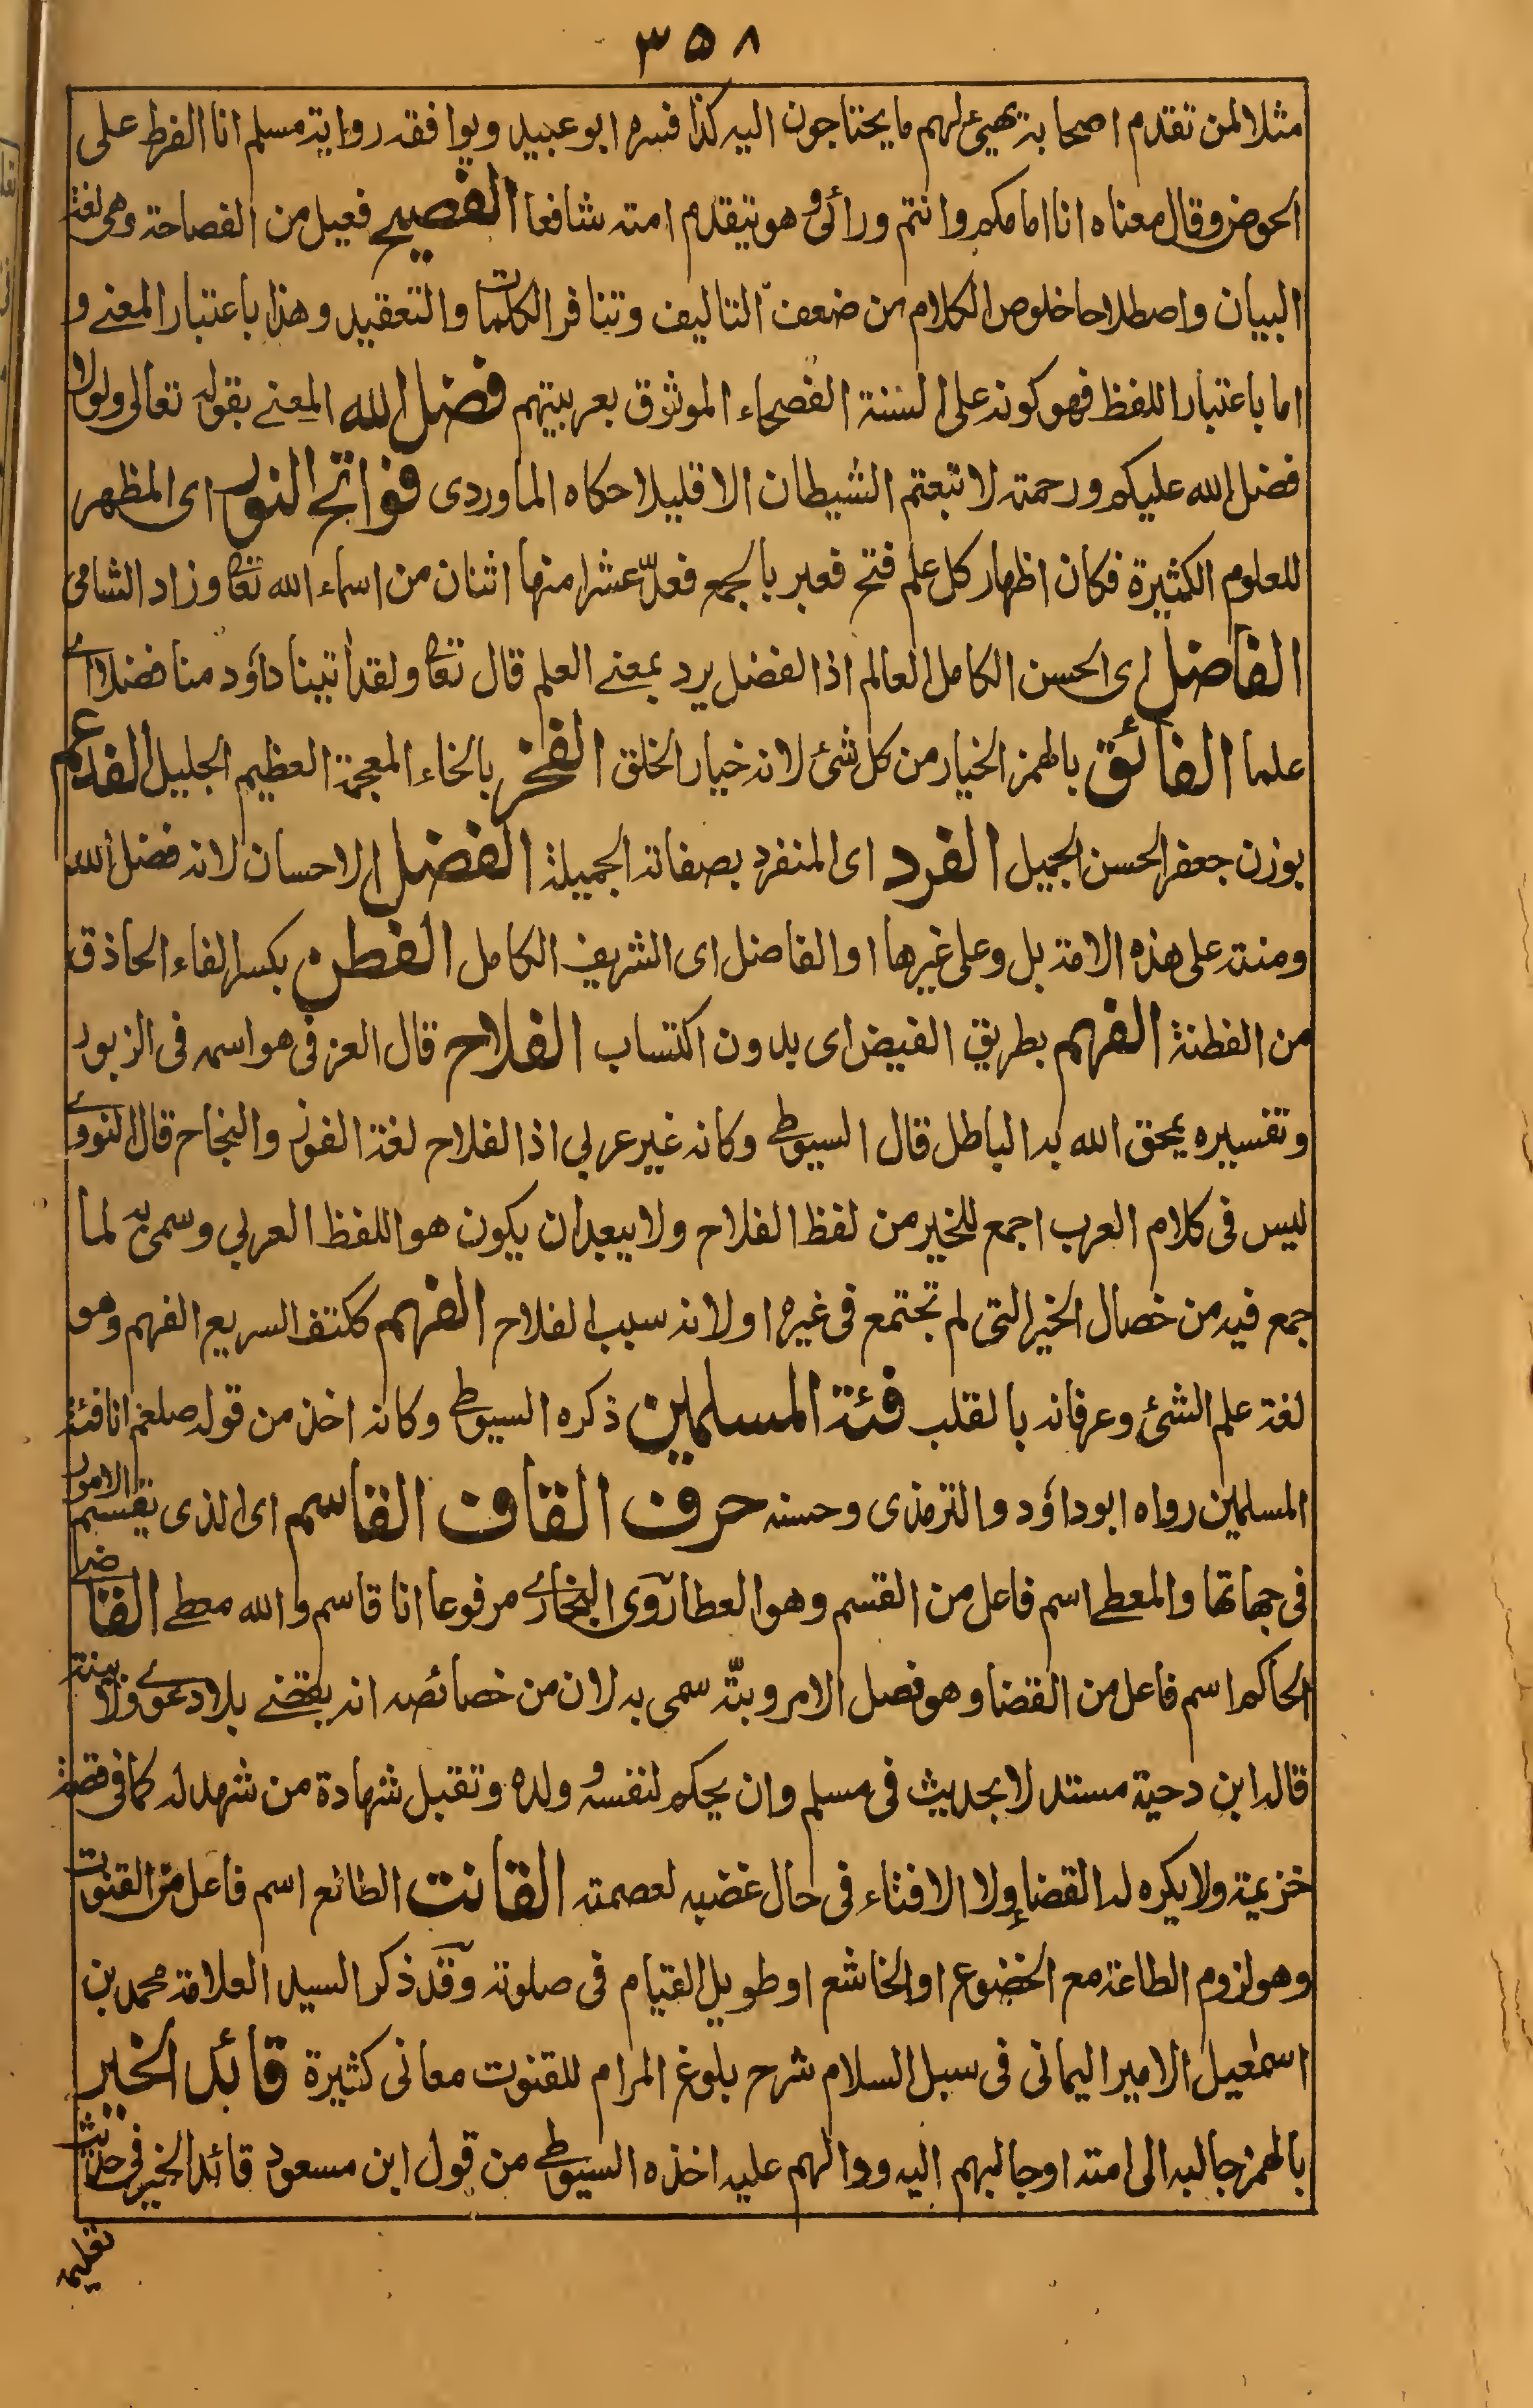 ٣٥٨
مثلا لمن تقدم اصحابه يهيئ لهم ما يحتاجون اليه كذا فسره ابو عبيد ويوافقه رواية مسلم انا الفرط على
الحوض وقال معناه انا امامكم وانتم ورائى وهو يتقدم امته شافعا الفصيح فعيل من الفصاحة وهى لغة
البيان واصطلاحا خلوص الكلام من ضعف التاليف وتنافر الكلمات والتعقيد وهذا باعتبار المعنے و
اما باعتبار اللفظ فهو كونه على السنة الفصحاء الموثوق بعربيتهم فضل الله المعنے بقوله تعالى ولولا
فضل الله عليكم ورحمته لا تبعتم الشيطان الا قليلا حكاه الماوردى فواتح النور اى المظهر
للعلوم الكثيرة فكان اظهار كل علم فتح فعبر بالجمع فعدّ عشرا منها اثنان من اسماء الله تعا وزاد الشامى
الفاضل اى الحسن الكامل العالم اذ الفضل يرد بمعنے العلم قال تعا ولقد أتينا داؤد منا فضلا اے
علما الفائق بالهمز الخيار من كل شئ لانه خيار الخلق الفخر بالخاء المعجمة العظيم الجليل الفدعم
بوزن جعفر الحسن الجميل الفرد اى المنفرد بصفاته الجميلة الفضل الاحسان لانه فضل الله
ومنته على هذه الامة بل وعلى غيرها او الفاضل اى الشريف الكامل الفطن بكسر الفاء الحاذق
من الفطنة الفهم بطريق الفيض اى بدون اكتساب الفلاح قال العزفى هو اسمه فى الزبور
وتفسيره يمحق الله به الباطل قال السيوطے وكانه غير عربي اذ الفلاح لغة الفوز والنجاح قال النووے
ليس فى كلام العرب اجمع للخير من لفظ الفلاح ولا يبعد ان يكون هو اللفظ العربي وسمى به لما
جمع فيه من خصال الخير التى لم تجتمع فى غيره او لانه سبب الفلاح الفهم ككتف السريع الفهم وهو
لغة علم الشئ وعرفانه بالقلب فئة المسلمين ذكره السيوطے وكانه اخذ من قوله صلعم انا فئة
المسلمين رواه ابو داؤد والترمذى وحسنه حرف القاف القاسم اى الذى يقسم الامور
فى جهاتها والمعطے اسم فاعل من القسم وهو العطا روى البخارے مرفوعا انا قاسم والله معطے القاضے
الحاكم اسم فاعل من القضا وهو فصل الامر وبتّه سمى به لان من خصائصه انه يقضے بلا دعوے ولا بينة
قاله ابن دحية مستدلا بحديث فى مسلم وان يحكم لنفسه وولده وتقبل شهادة من شهد له كما فى قصة
خزيمة ولا يكره له القضا ولا الافتاء فى حال غضبه لعصمته القانت الطائع اسم فاعل من القنوت
وهو لزوم الطاعة مع الخضوع او الخاشع او طويل القيام فى صلوته وقد ذكر السيد العلامة محمد بن
اسمعيل الامير اليمانى فى سبل السلام شرح بلوغ المرام للقنوت معانى كثيرة قائد الخير
بالهمز جالبه الى امته او جالبهم اليه ودالهم عليه اخذه السيوطے من قول ابن مسعود قائد الخير فى حديث
تعليمه